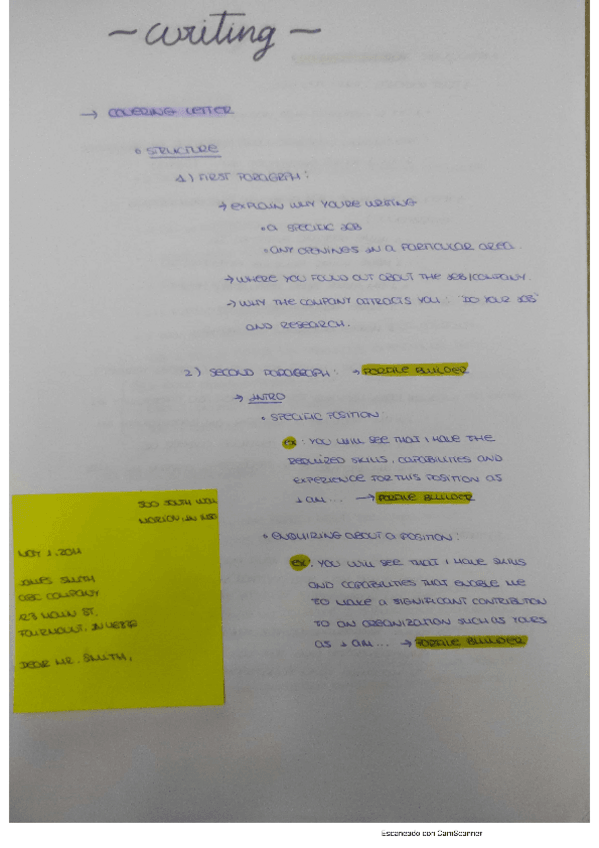 ~ writing ~
→ COVERING LETTER
• STRUCTURE
1) FIRST PARAGRAPH:
→ EXPLAIN WHY YOU'RE WRITING
• A SPECIFIC JOB
• ANY OPENINGS IN A PARTICULAR AREA.
→ WHERE YOU FOUND OUT ABOUT THE JOB/COMPANY.
→ WHY THE COMPANY ATTRACTS YOU: "DO YOUR JOB"
AND RESEARCH.
2) SECOND PARAGRAPH: → PORFILE BUILDER
→ INTRO
• SPECIFIC POSITION:
ex: YOU WILL SEE THAT I HAVE THE
REQUIRED SKILLS, CAPABILITIES AND
EXPERIENCE FOR THIS POSITION AS
I AM... → PORFILE BUILDER
• ENQUIRING ABOUT A POSITION:
ex: YOU WILL SEE THAT I HAVE SKILLS
AND CAPABILITIES THAT ENABLE ME
TO MAKE A SIGNIFICANT CONTRIBUTION
TO AN ORGANIZATION SUCH AS YOURS
AS I AM... → PORFILE BUILDER
MAY 1, 2011
JAMES SMITH
ABC COMPANY
123 MAIN ST.
DEAR MR. SMITH,
Escaneado con CamScanner